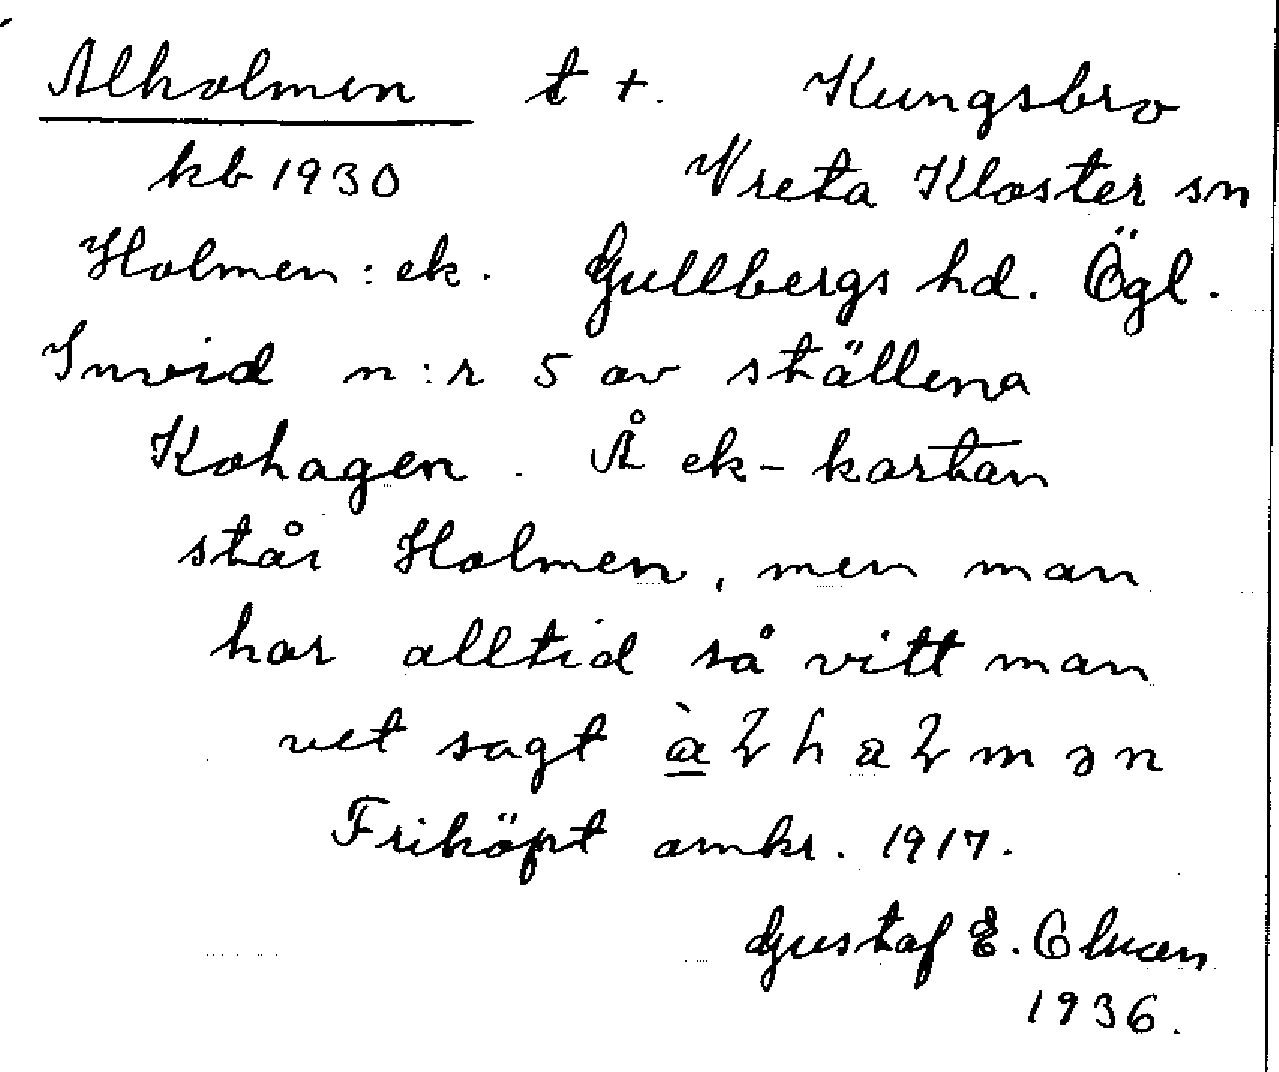 Alholmen t +. Kungsbro
kb 1930 Vreta Kloster sn
Holmen : ek. Gullbergs hd. Ögl.
Invid n:r 5 av ställena
Kohagen. Å ek-kartan
står Holmen, men man
har alltid så vitt man
vet sagt
Friköpt omkr. 1917.
Gustaf E.
1936.